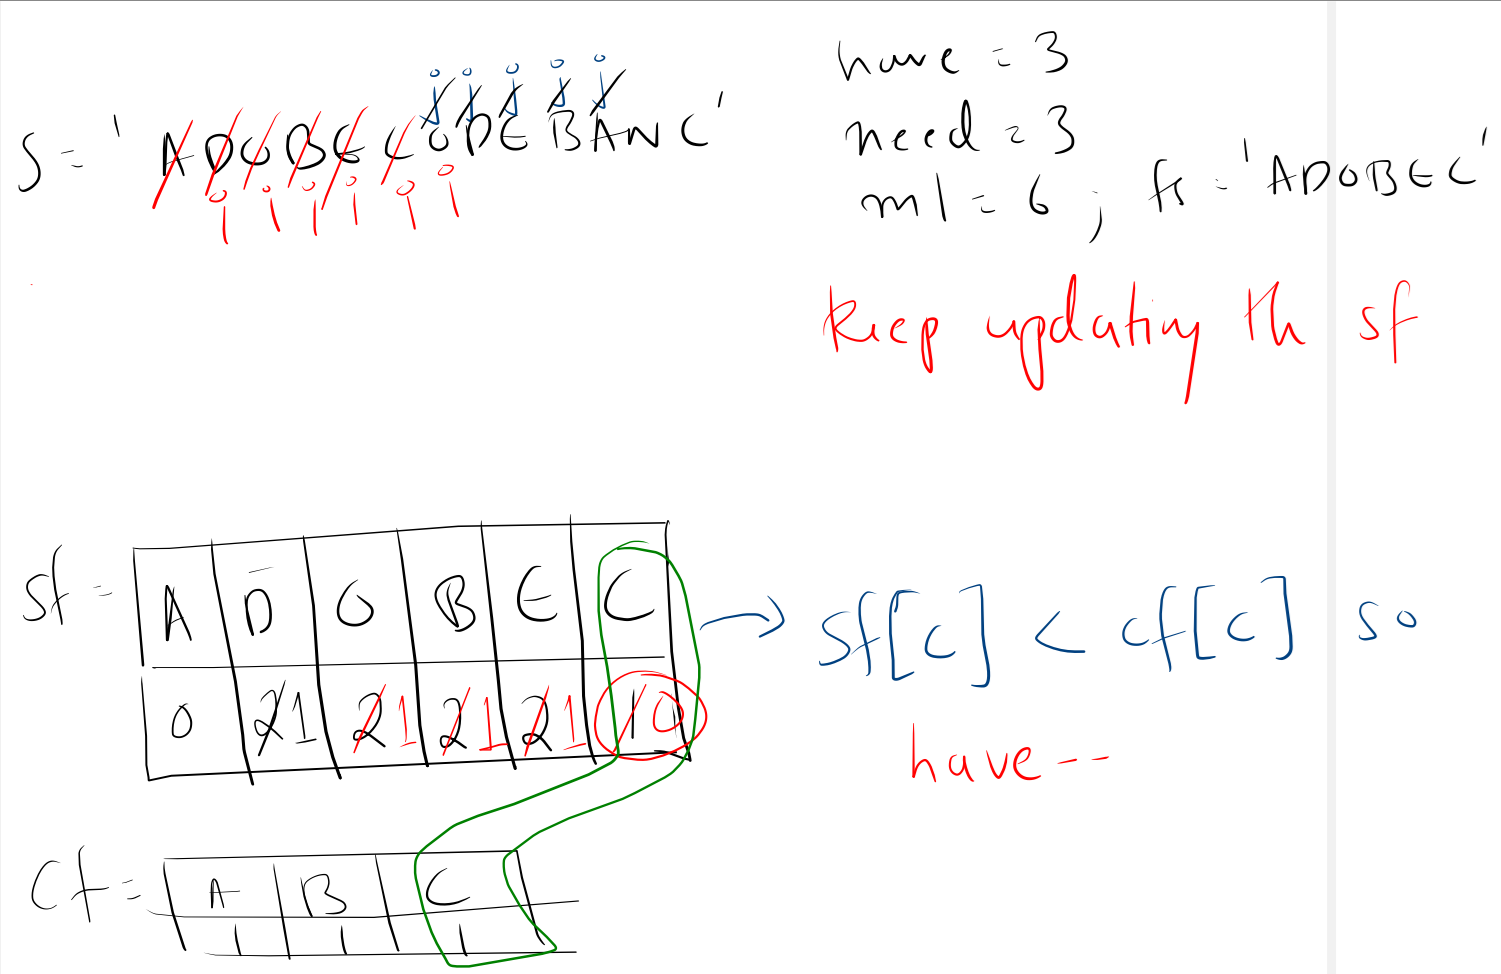 S = 'ADOBECODEBANC'
have = 3
need = 3
ml = 6 ; fs = 'ADOBEC'
keep updating th sf
sf =
A D O B E C
0 21 21 21 21 10
→ sf[c] < cf[c] so
have--
Cf =
A B C
1 1 1